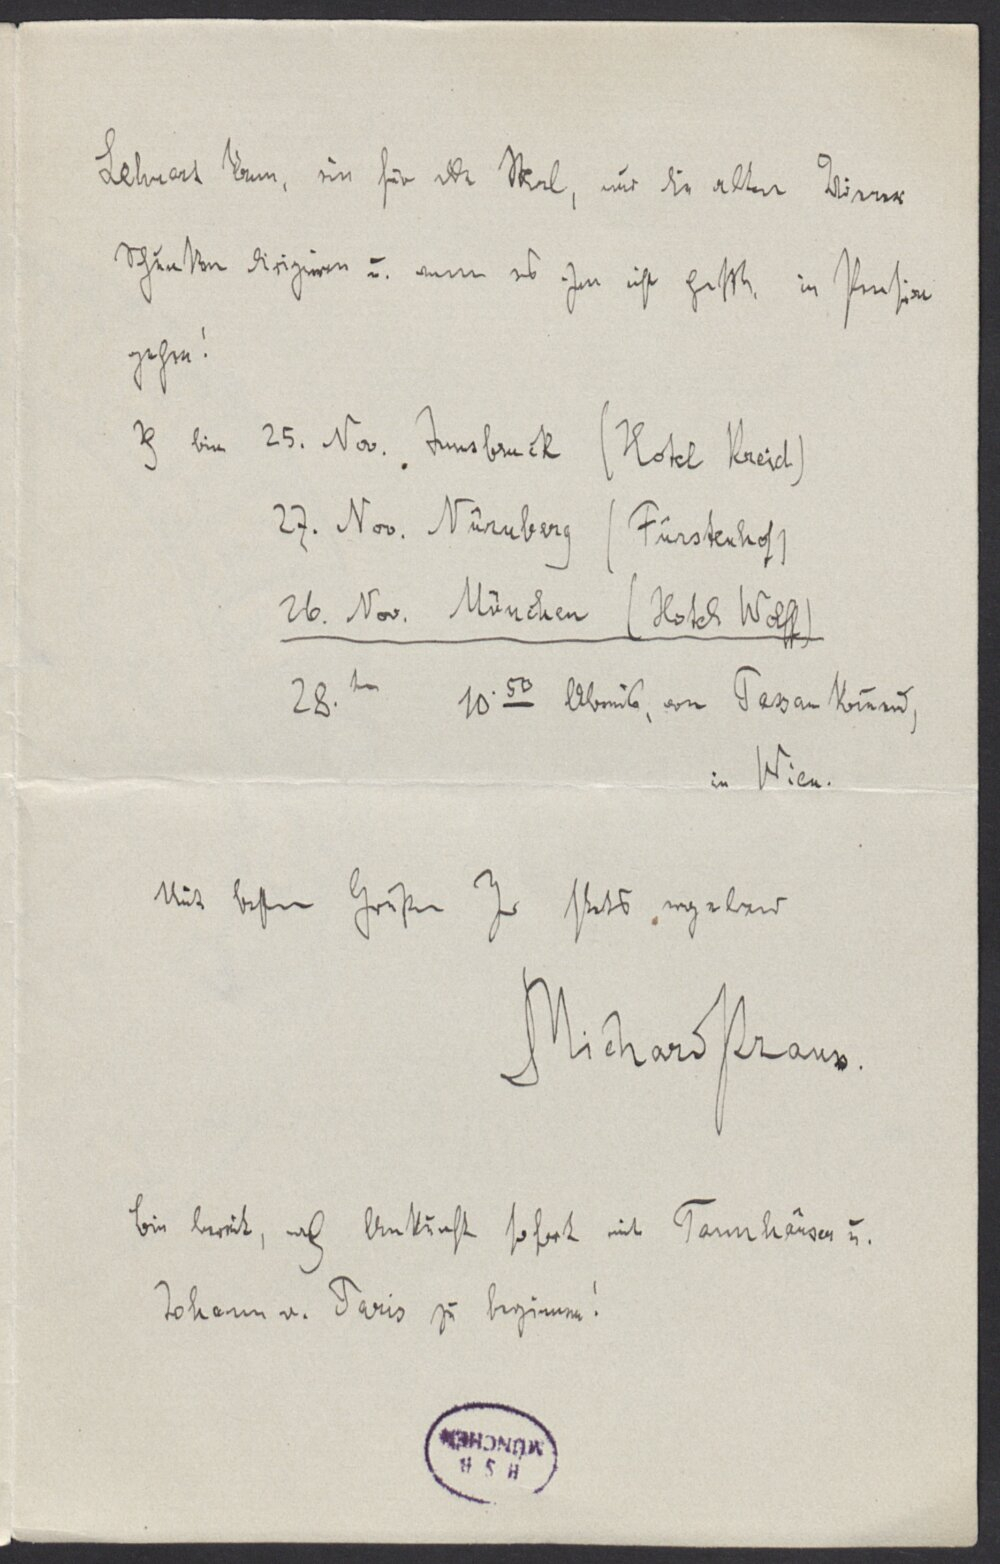 Lehnert kann, ein für alle Mal, nur die alten Wiener
Schunken dirigieren u. wenn es ihm nicht gefällt, in Pension
gehen!
Ich bin 25. Nov. Innsbruck (Hotel Kreid)
27. Nov. Nürnberg (Fürstenhof)
26. Nov. München (Hotel Wolff)
28. ten 10.50 Abends, von Passau kommend,
in Wien.
Mit besten Grüßen Ihr stets ergebener
Richard Strauss.
Bin bereit, nach Ankunft sofort mit Tannhäuser u.
Johann v. Paris zu beginnen!
HSA
MÜNCHEN